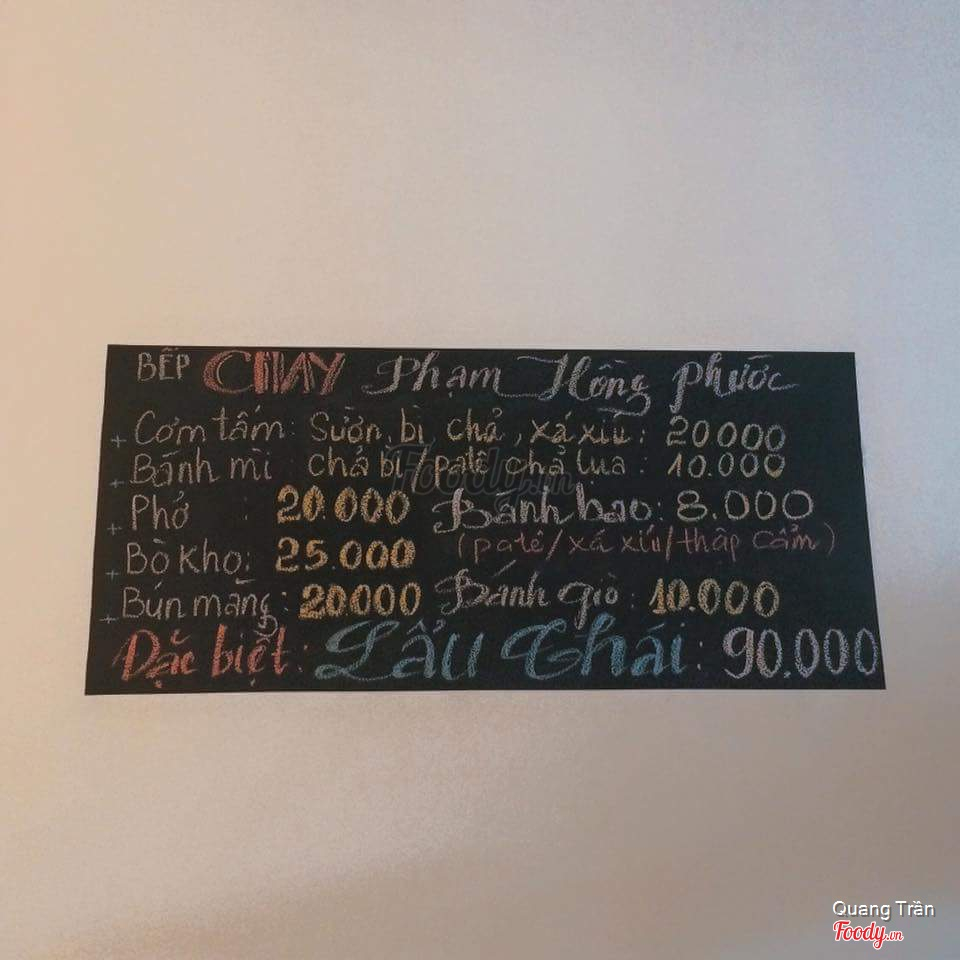 BẾP CHAY Phạm Hồng Phước
+ Cơm tấm: Sườn, bì chả, xá xíu: 20000
+ Bánh mì chả bì / patê chả lụa: 10.000
+ Phở : 20.000 Bánh bao: 8.000
+ Bò kho: 25.000 (patê/xá xíu/thập cẩm)
+ Bún măng: 20000 Bánh giò: 10.000
Đặc biệt: Lẩu Thái: 90.000
Foody.vn
Quang Trần
Foody.vn